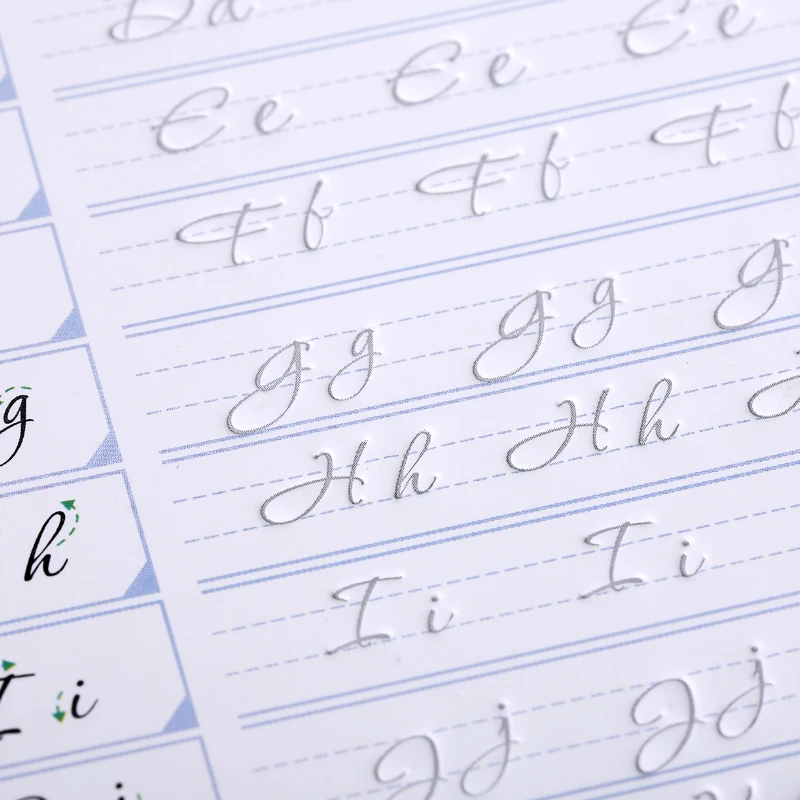 Da
Ee Ee Ee
Ff Ff Ff
g Gg Gg G
h Hh Hh
I i Ii Ii
j Jj Jj